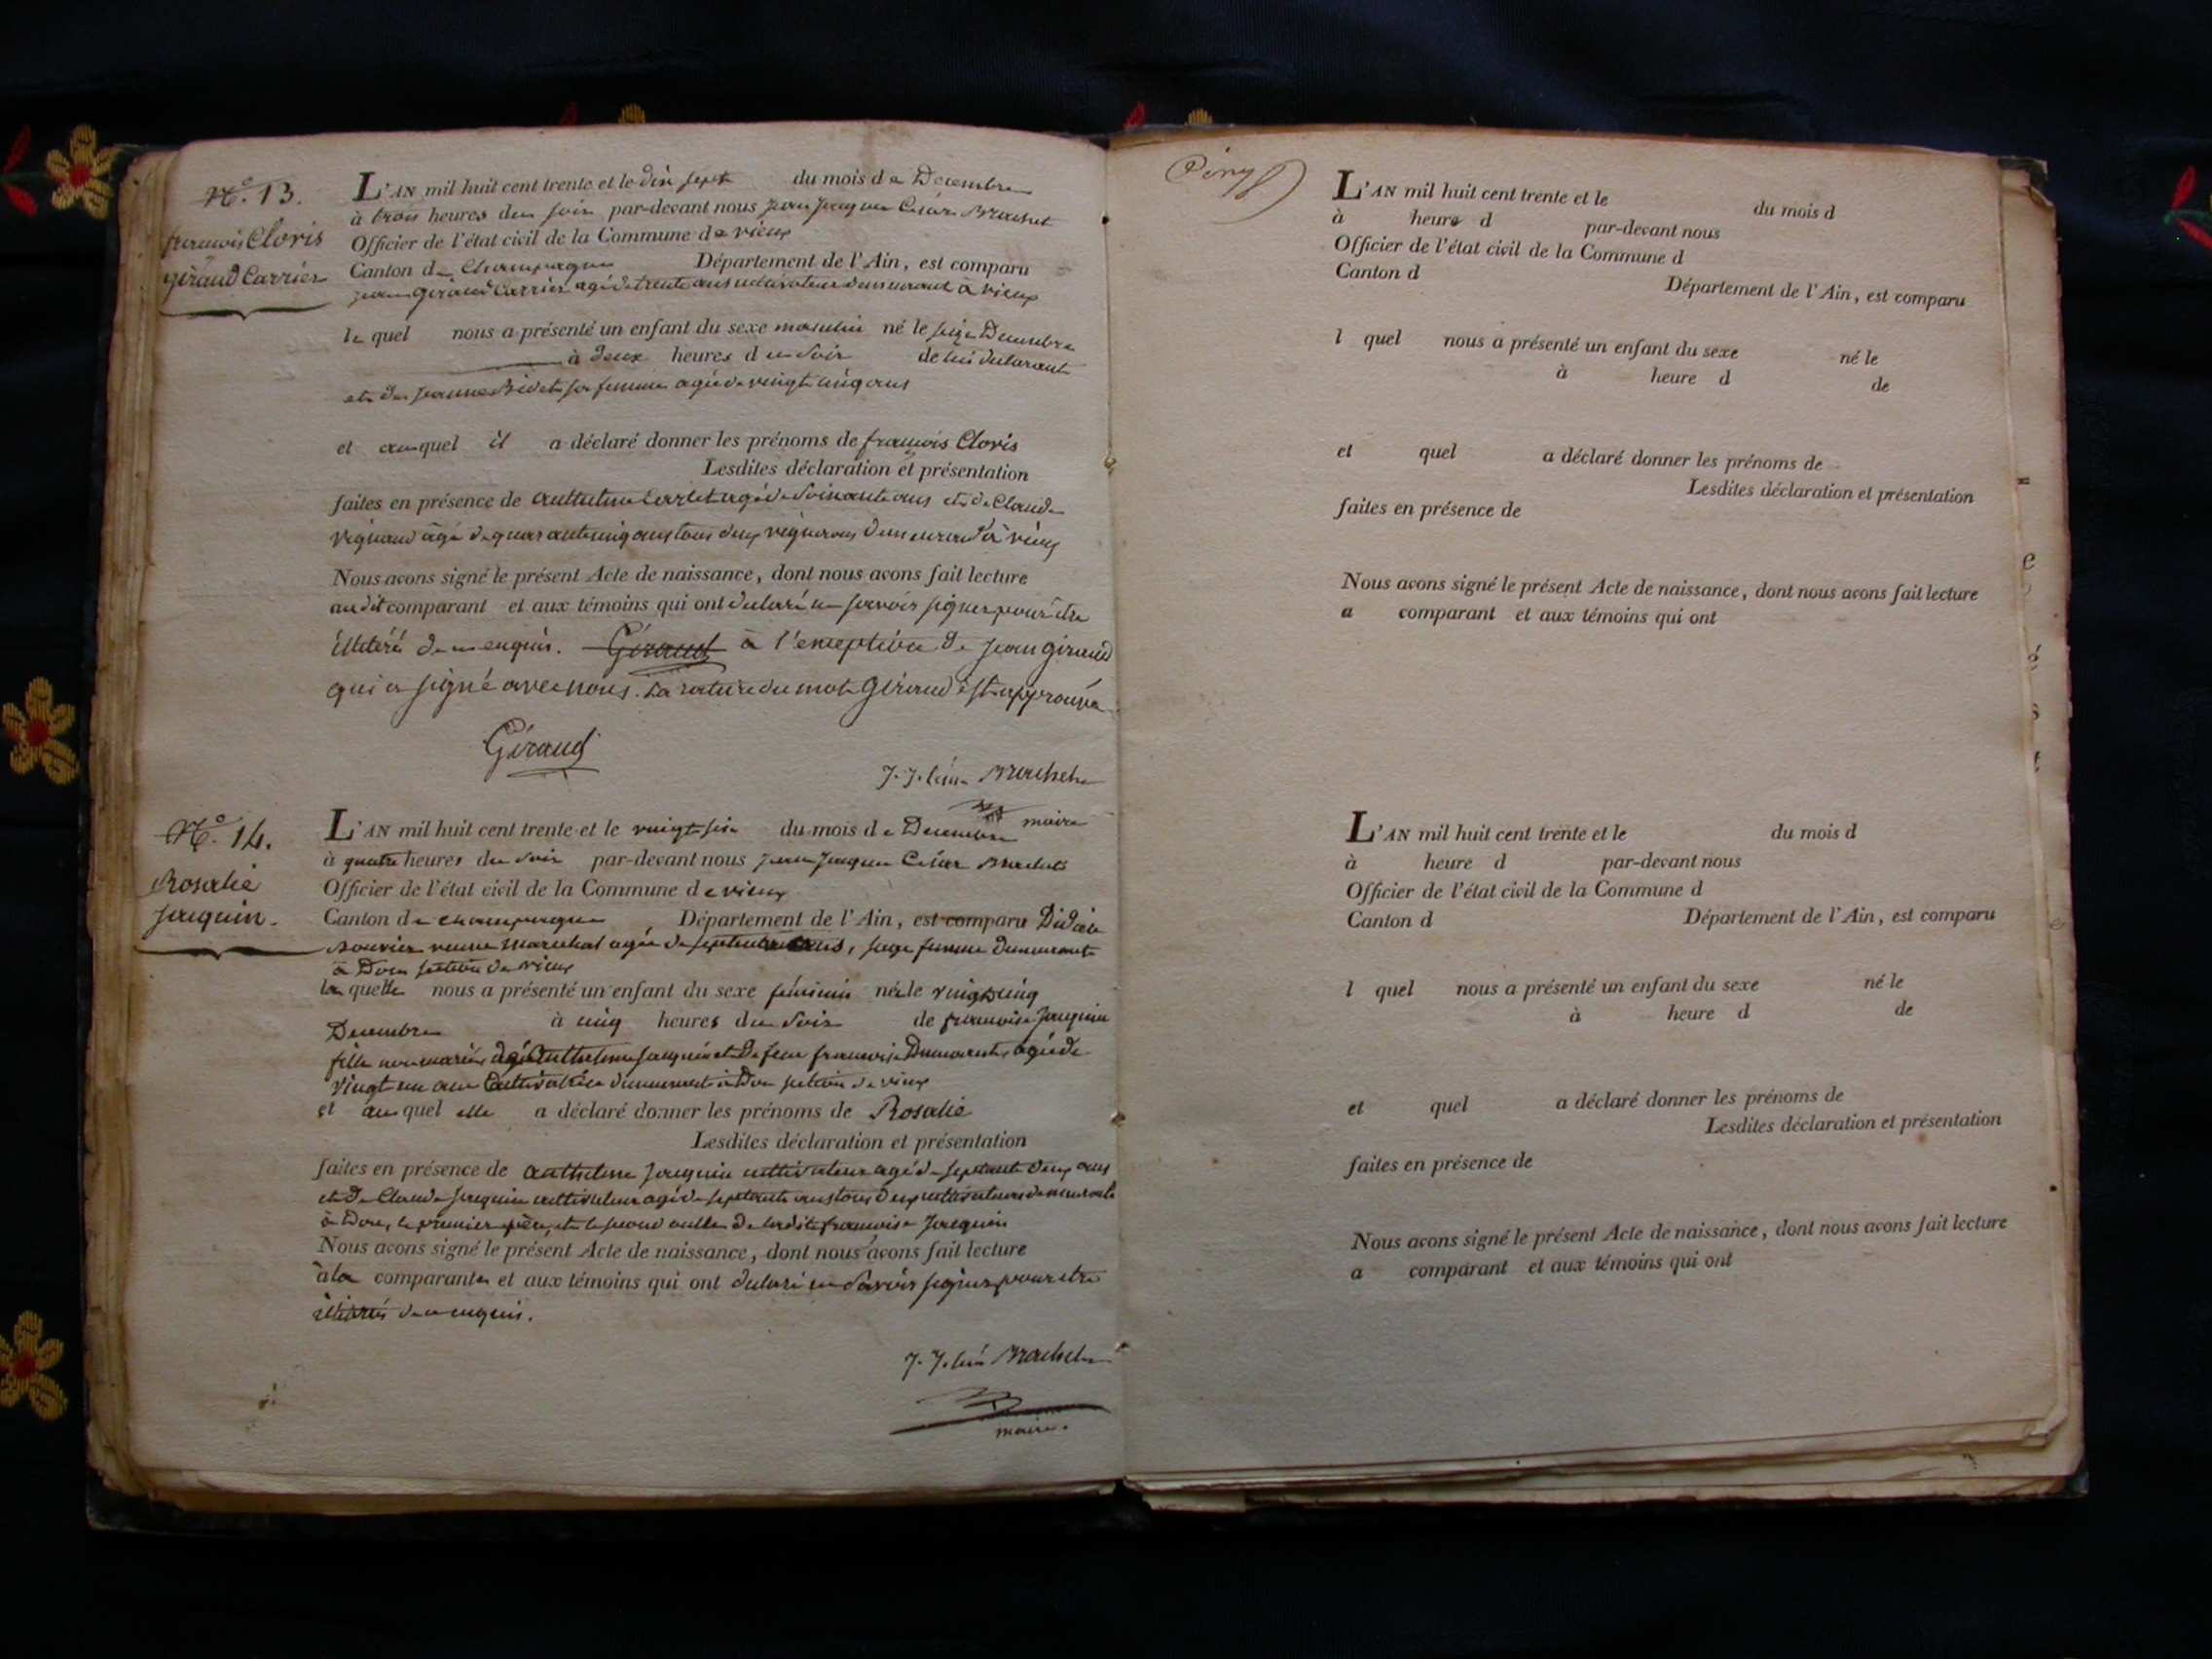 N.o 13.
françois Cloris
giraud Carrier
L'AN mil huit cent trente et le dix sept du mois de Decembre
à trois heures du soir par-devant nous jean jaques César Brachet
Officier de l'état civil de la Commune de vieux
Canton de Champagne Département de l'Ain, est comparu
jean giraud Carrier agé de trente ans cultivateur demeurant à vieux
le quel nous a présenté un enfant du sexe masculin né le seize Decembre
à deux heures du soir de lui declarant
et de jeanne Bidet sa femme agée de vingt cinq ans
et auquel il a déclaré donner les prénoms de françois Cloris
Lesdites déclaration et présentation
faites en présence de anthelme agé de soixante ans et de Claude
vignaud âgé de quarante cinq ans tous deux vignerons demeurant à vieux
Nous avons signé le présent Acte de naissance, dont nous avons fait lecture
audit comparant et aux témoins qui ont declaré ne savoir signer pour être
illiterés de ce enquis. Giraud à l'exception de jean giraud
qui a signé avec nous. La rature du mot Giraud est approuvée
Giraud
J. J. César Brachet
maire
N.o 14.
Rosalie
jacquin.
L'AN mil huit cent trente et le vingt six du mois de Decembre
à quatre heures du soir par-devant nous jean jaques César Brachet
Officier de l'état civil de la Commune de vieux
Canton de champagne Département de l'Ain, est comparu
Bouvier veuve Marechal agée de ans, sage femme demeurant
à Don section de vieux
la quelle nous a présenté un enfant du sexe féminin née le vingt cinq
Decembre à cinq heures du soir de françoise Jacquin
fille non mariée d'anthelme jacquin et de feue françoise agée de
vingt un ans Cultivatrice demeurant à Don section de vieux
et auquel elle a déclaré donner les prénoms de Rosalie
Lesdites déclaration et présentation
faites en présence de anthelme jacquin cultivateur agé de septante deux ans
et de Claude jacquin cultivateur agé de septante ans tous deux cultivateurs demeurant
à Don, le premier père, et le second oncle de ladite françoise Jacquin
Nous avons signé le présent Acte de naissance, dont nous avons fait lecture
à la comparante et aux témoins qui ont declaré ne savoir signer pour etre
illiterés de ce enquis.
J. J. César Brachet
maire.
L'AN mil huit cent trente et le du mois d
à heure d par-devant nous
Officier de l'état civil de la Commune d
Canton d Département de l'Ain, est comparu
l quel nous a présenté un enfant du sexe né le
à heure d de
et quel a déclaré donner les prénoms de
Lesdites déclaration et présentation
faites en présence de
Nous avons signé le présent Acte de naissance, dont nous avons fait lecture
a comparant et aux témoins qui ont
L'AN mil huit cent trente et le du mois d
à heure d par-devant nous
Officier de l'état civil de la Commune d
Canton d Département de l'Ain, est comparu
l quel nous a présenté un enfant du sexe né le
à heure d de
et quel a déclaré donner les prénoms de
Lesdites déclaration et présentation
faites en présence de
Nous avons signé le présent Acte de naissance, dont nous avons fait lecture
a comparant et aux témoins qui ont